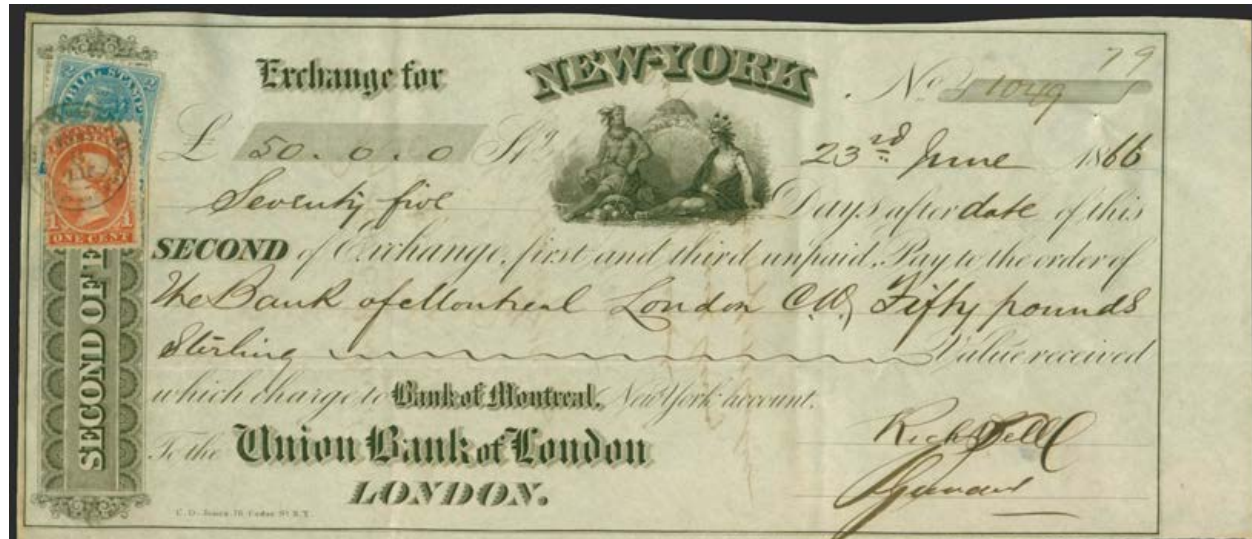 Exchange for NEW-YORK
79
No. 1049
£ 50.0.0 Stg 23rd June 1866
Seventy five Days after date of this
SECOND of Exchange, first and third unpaid, Pay to the order of
The Bank of Montreal London C.W, Fifty pounds
Sterling Value received
which charge to Bank of Montreal, New York account.
To the Union Bank of London
LONDON.
Rich Bell
C. D. Jones 16, Cedar St. N.Y.
SECOND OF E
2 BILL STAMP 2
1 ONE CENT 1